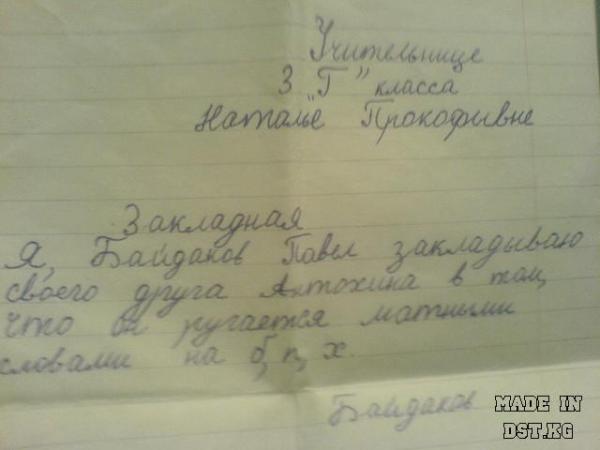 Учительнице
3 "Г" класса
Наталье Прокофивне
Закладная
Я, Байдаков Павел закладываю
своего друга Антохина в том,
что он ругается матными
словами на б, п, х.
Байдаков
MADE IN
DST.KG